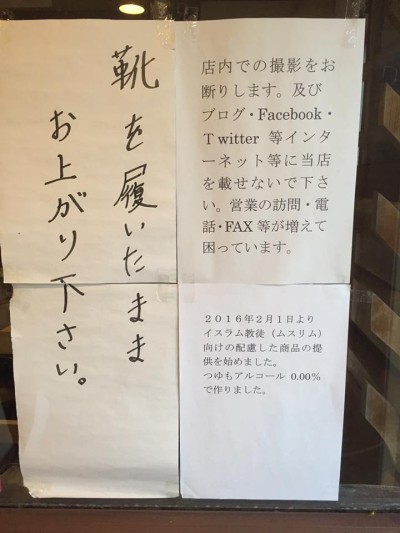 靴を履いたまま
お上がり下さい。
店内での撮影をお
断りします。及び
ブログ・Facebook・
Twitter 等インタ
ーネット等に当店
を載せないで下さ
い。営業の訪問・電
話・FAX 等が増えて
困っています。
２０１６年２月１日より
イスラム教徒（ムスリム）
向けの配慮した商品の提
供を始めました。
つゆもアルコール 0.00％
で作りました。